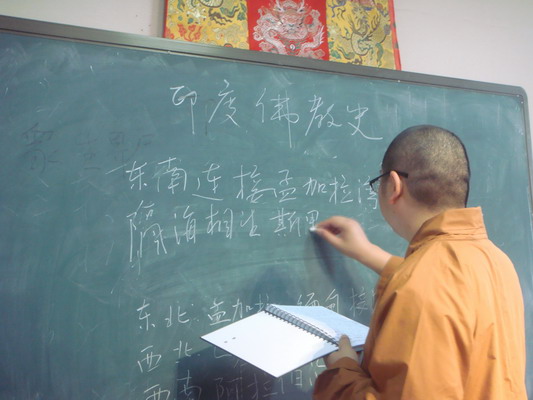 印度佛教史
东南连接孟加拉湾
隔海相望斯里
东北:孟加拉 缅甸接
西北
西南 阿拉伯